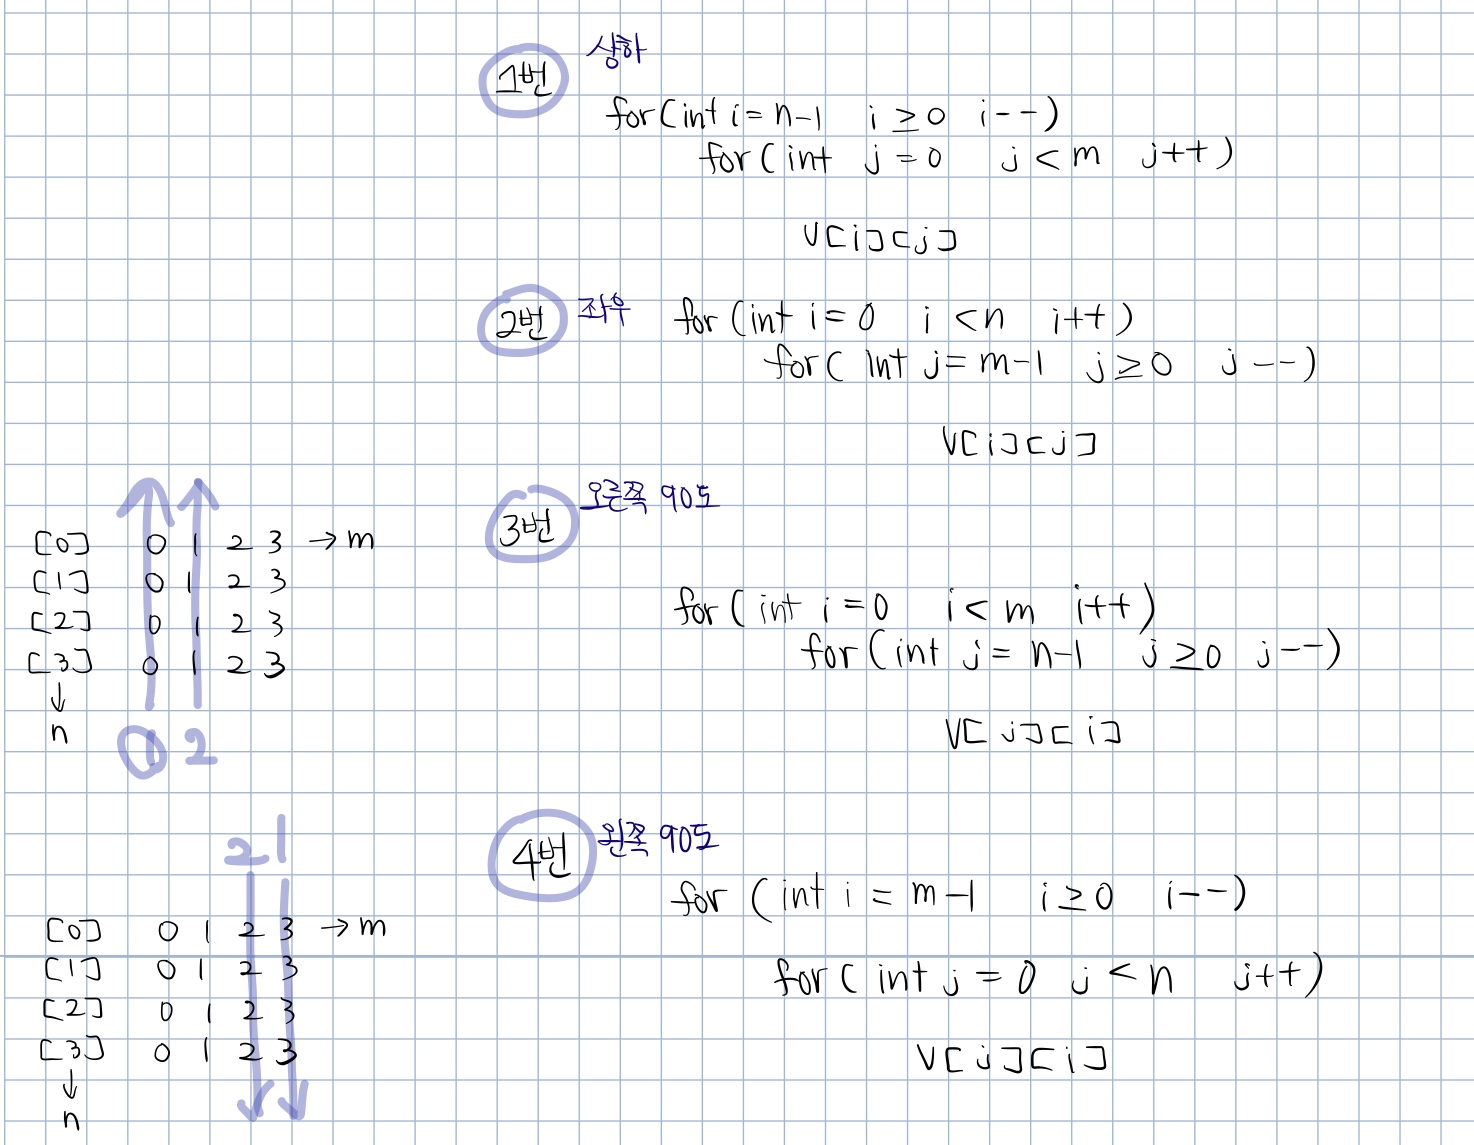 1번 상하
for(int i=n-1 i≥0 i--)
for(int j=0 j<m j++)
V[i][j]
2번 좌우 for(int i=0 i<n i++)
for( int j=m-1 j≥0 j--)
V[i][j]
3번 오른쪽 90도
for( int i=0 i<m i++)
for(int j= n-1 j≥0 j--)
V[j][i]
[0] 0 1 2 3 →m
[1] 0 1 2 3
[2] 0 1 2 3
[3] 0 1 2 3
↓
n
1 2
4번 왼쪽 90도
for (int i = m-1 i≥0 i--)
for( int j = 0 j<n j++)
V[j][i]
2 1
[0] 0 1 2 3 →m
[1] 0 1 2 3
[2] 0 1 2 3
[3] 0 1 2 3
↓
n